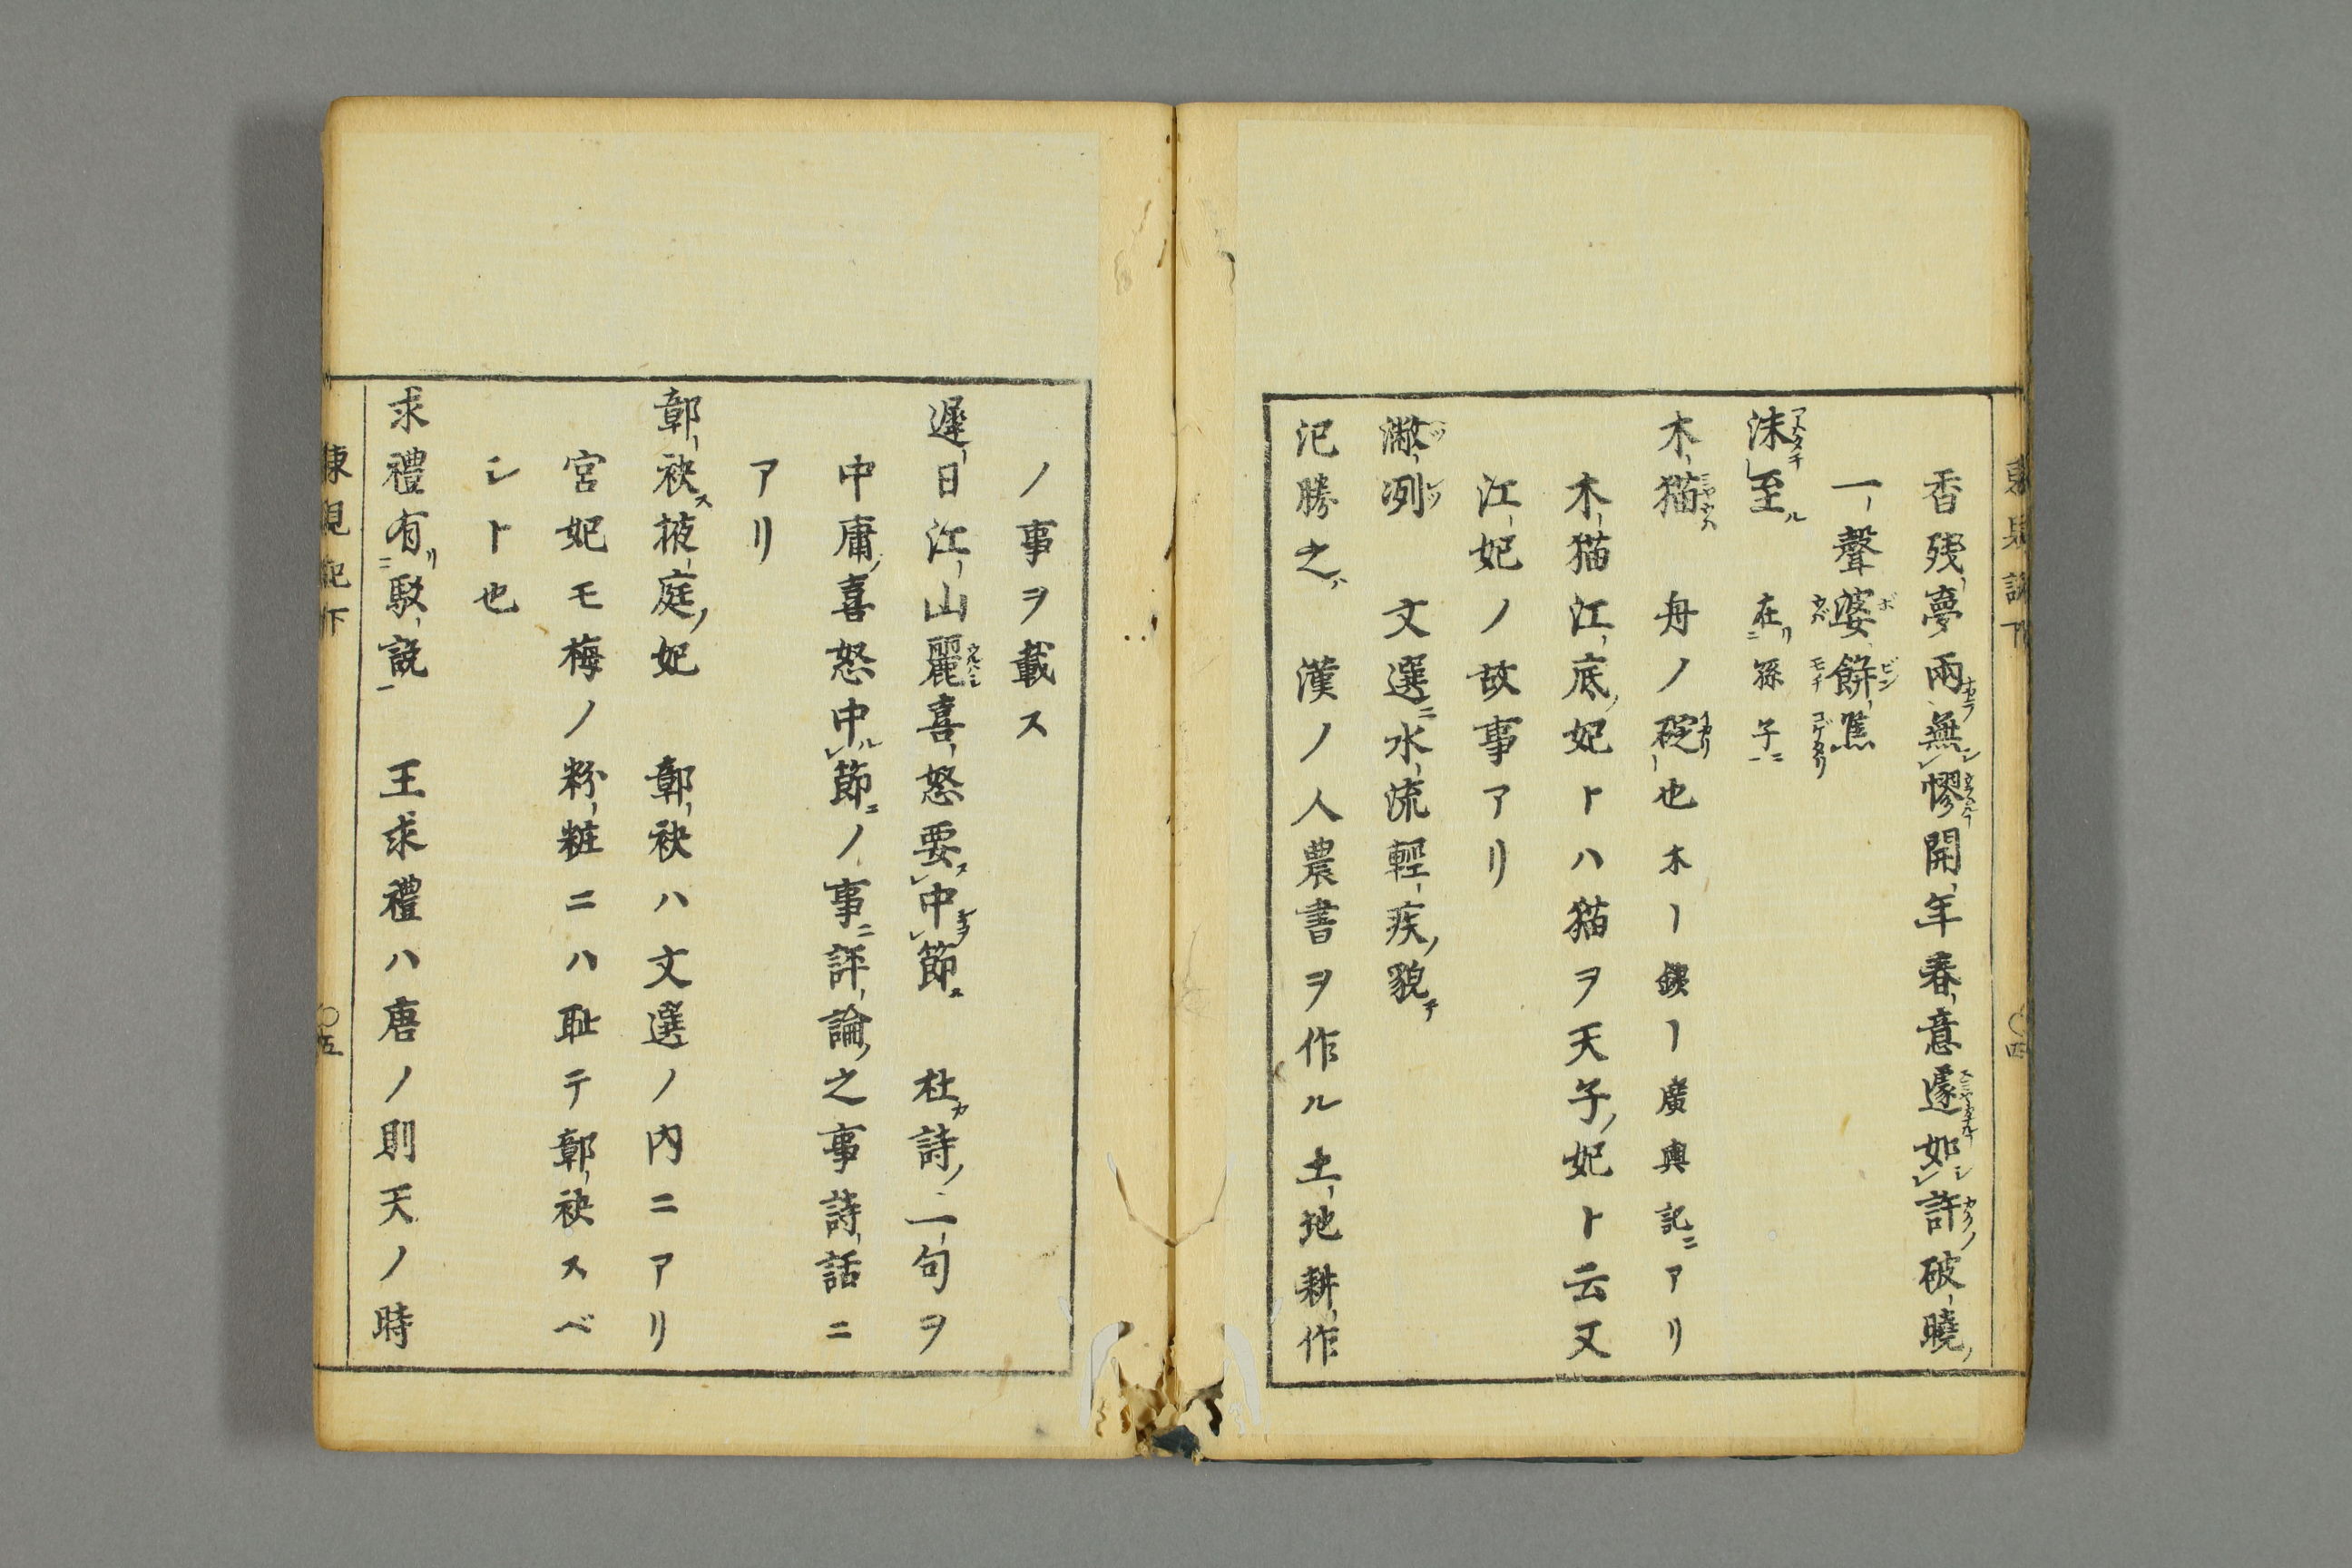 香残夢兩無憀開年春意遽如許破曉
一聲婆餅焦
沫至 在孫子
木猫 舟ノ碇也木ー鉄ー廣輿記ニアリ
木猫江底妃トハ猫ヲ天子妃ト云又
江妃ノ故事アリ
潎洌 文選ニ水流輕疾ノ貌
氾勝之 漢ノ人農書ヲ作ル土地耕作
ノ事ヲ載ス
遲日江山麗喜怒要中節 杜カ詩ノ一句ヲ
中庸喜怒中節ノ事ニ評論ノ之事詩話ニ
アリ
鄣袂掖庭妃 鄣袂ハ文選ノ内ニアリ
宮妃モ梅ノ粉粧ニハ耻テ鄣袂スベ
シト也
求禮有駁説 王求禮ハ唐ノ則天ノ時
〇五